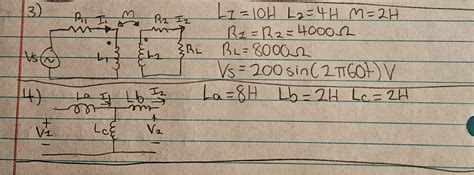 3)
R1 I1 M R2 I2
Vs L1 L2 RL
L1=10H L2=4H M=2H
R1=R2=4000Ω
RL=8000Ω
Vs=200sin(2π60t)V
4)
La I1 Lb I2
+ V1 - Lc + V2 -
La=8H Lb=2H Lc=2H